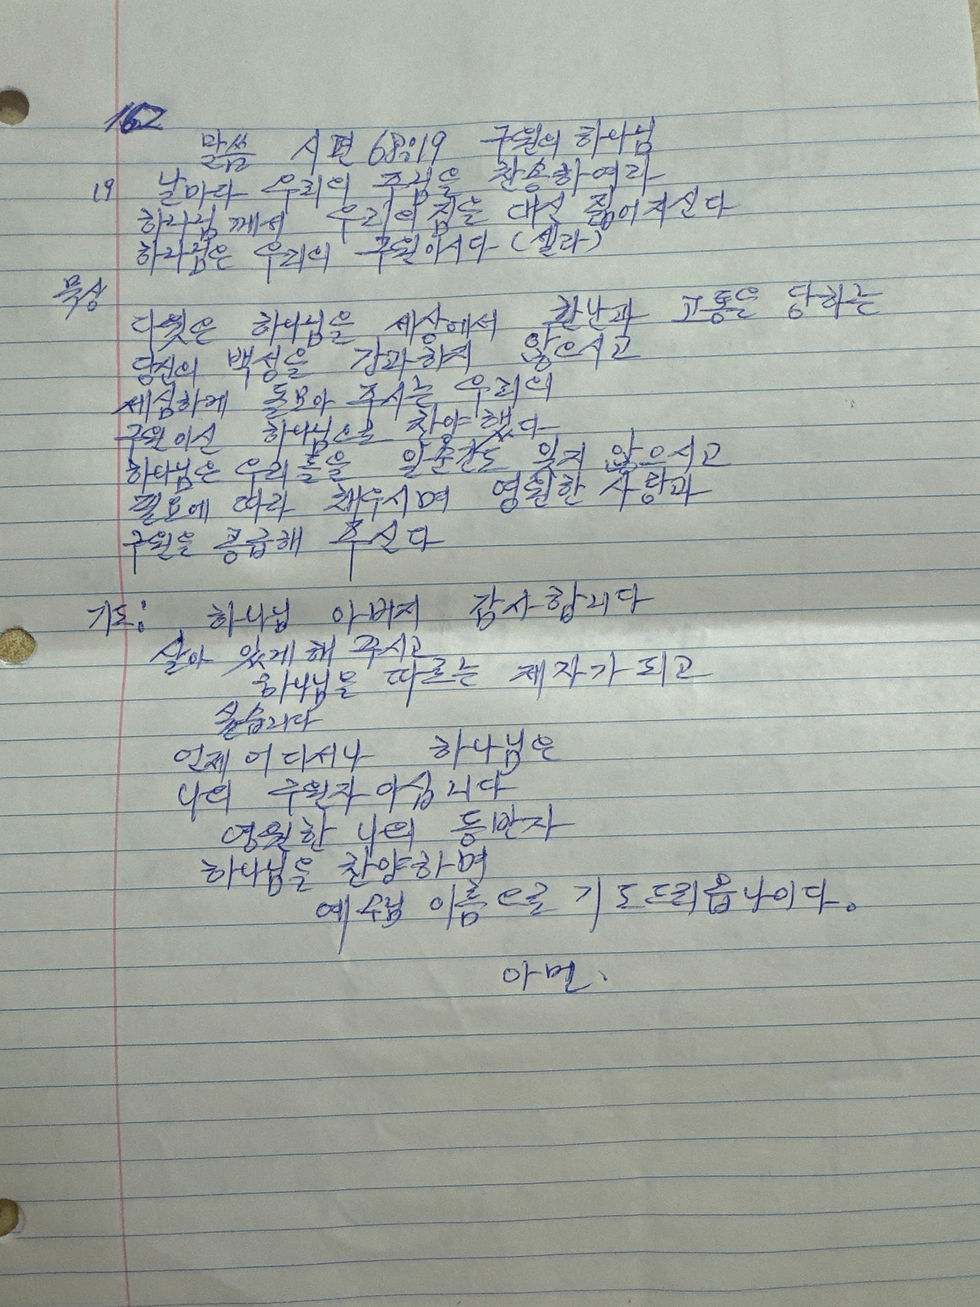 162
말씀 시편 68:19 구원의 하나님
19 날마다 우리의 주님을 찬송하여라
하나님께서 우리의 짐을 대신 짊어지신다
하나님은 우리의 구원이시다 (셀라)
묵상
다윗은 하나님을 세상에서 환난과 고통을 당하는
당신의 백성을 간과하지 않으시고
세심하게 돌보아 주시는 우리의
구원이신 하나님으로 찬양했다
하나님은 우리들을 일순간도 잊지 않으시고
필요에 따라 채우시며 영원한 사랑과
구원을 공급해 주신다
기도: 하나님 아버지 감사합니다
살아 있게 해 주시고
하나님을 따르는 제자가 되고
싶습니다
언제 어디서나 하나님은
나의 구원자 이십니다
영원한 나의 동반자
하나님을 찬양하며
예수님 이름으로 기도드리옵나이다.
아멘.